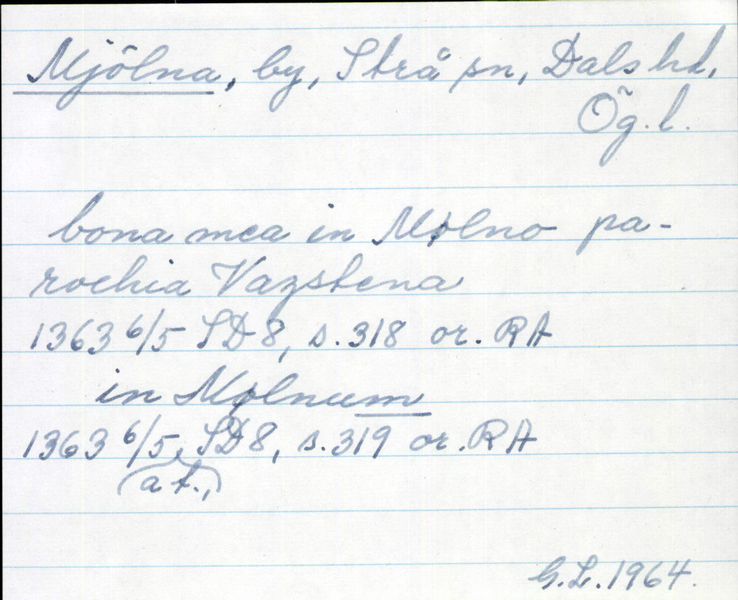 Mjölna, by, Strå sn, Dals hd,
Ög. l.
bona mea in Mølno pa-
rochia Vazstena
1363 6/5 SD 8, s. 318 or. RA
in Mølnum
1363 6/5, SD 8, s. 319 or. RA
(a t.,)
G.L. 1964.